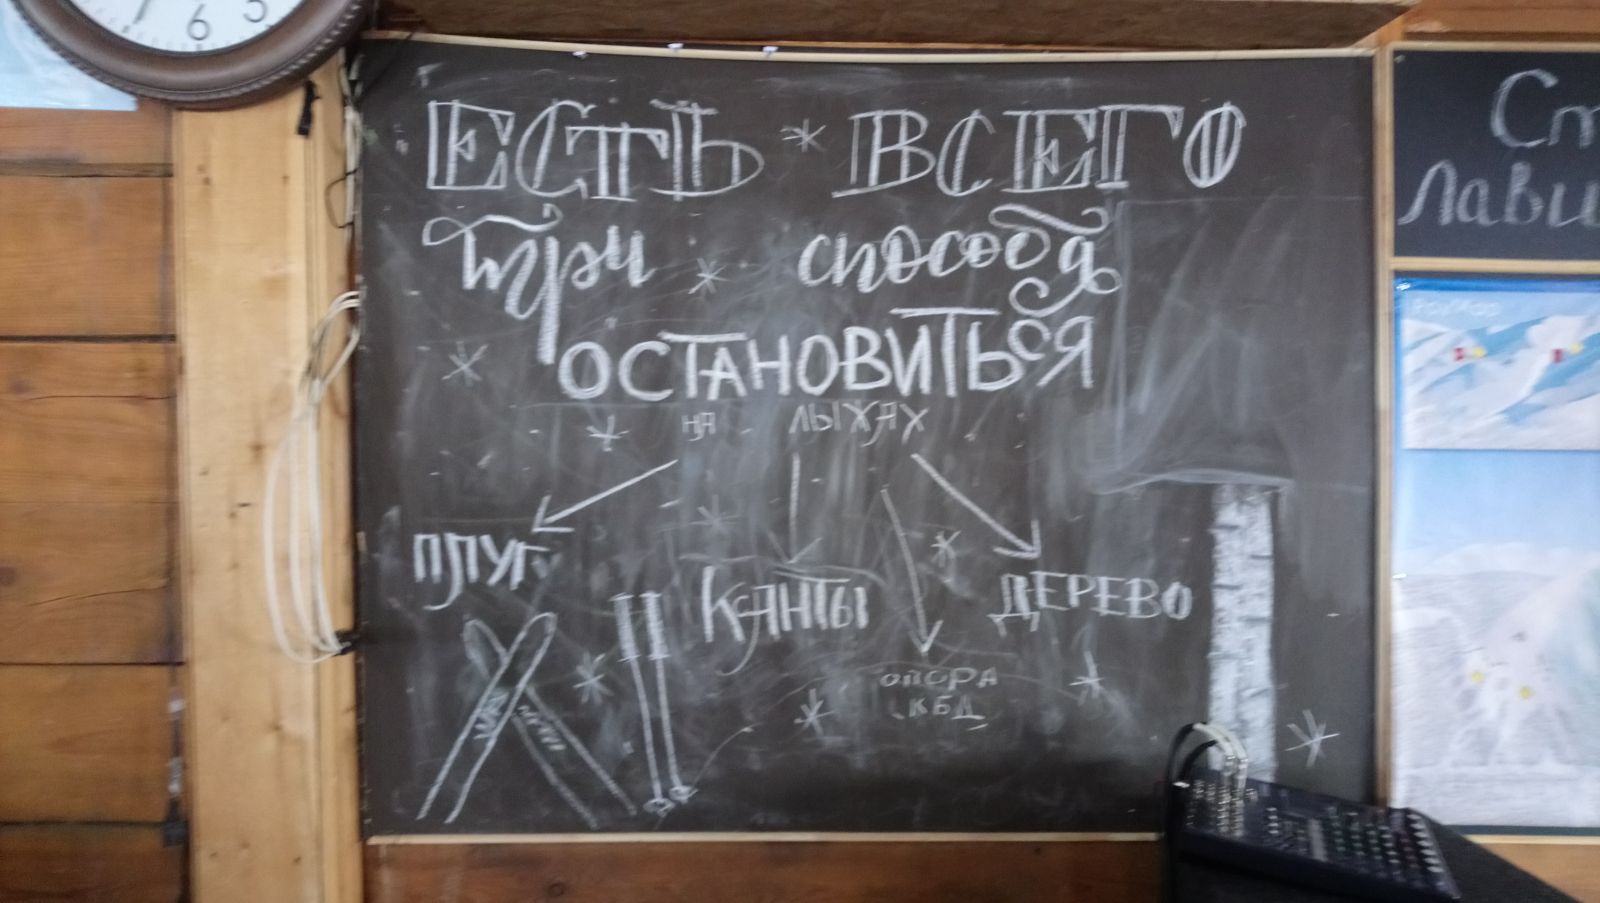 7 6 5
ЕСТЬ * ВСЕГО
три * способа
ОСТАНОВИТЬСЯ
НА ЛЫХАХ
ПЛУГ
КАНТЫ
ДЕРЕВО
ОПОРА
КБД
Ст
Лави